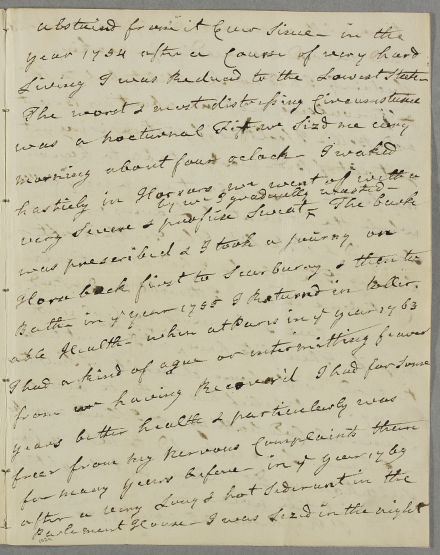 abstaind from it Ever Since in the
year 1754 after a Course of very hard
Living I was Reduced to the Lowest State
The worst & most distressing Circumstance
was a nocturnal Fit wc Sizd me evry
morning about four oclock I waked
hastiely in Horrors wc went of with a
by wc I gradually wasted
very severe & profuse Sweat ^ The bark
was prescribed & I took a journy on
Horseback first to Scarburay & then to
Bath in ye year 1755 I Returnd in toller
able Health when at Paris in ye year 1763
I had a kind of ague or intermitting feaver
from wc having Recoverd I had for some
years better health & particularly was
freer from my Nervous Complaints then
for many years before in ye year 1769
after a very Long & hot Siderunt in the
Parlement House I was Sizd in the night